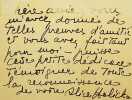 chère amie, vous
m'avez donné de
telles preuves d'amitié
et vous avez fait tant
pour moi - puisse
cette petite dédicace
témoigner de toute
la reconnaissance
de votre Alice